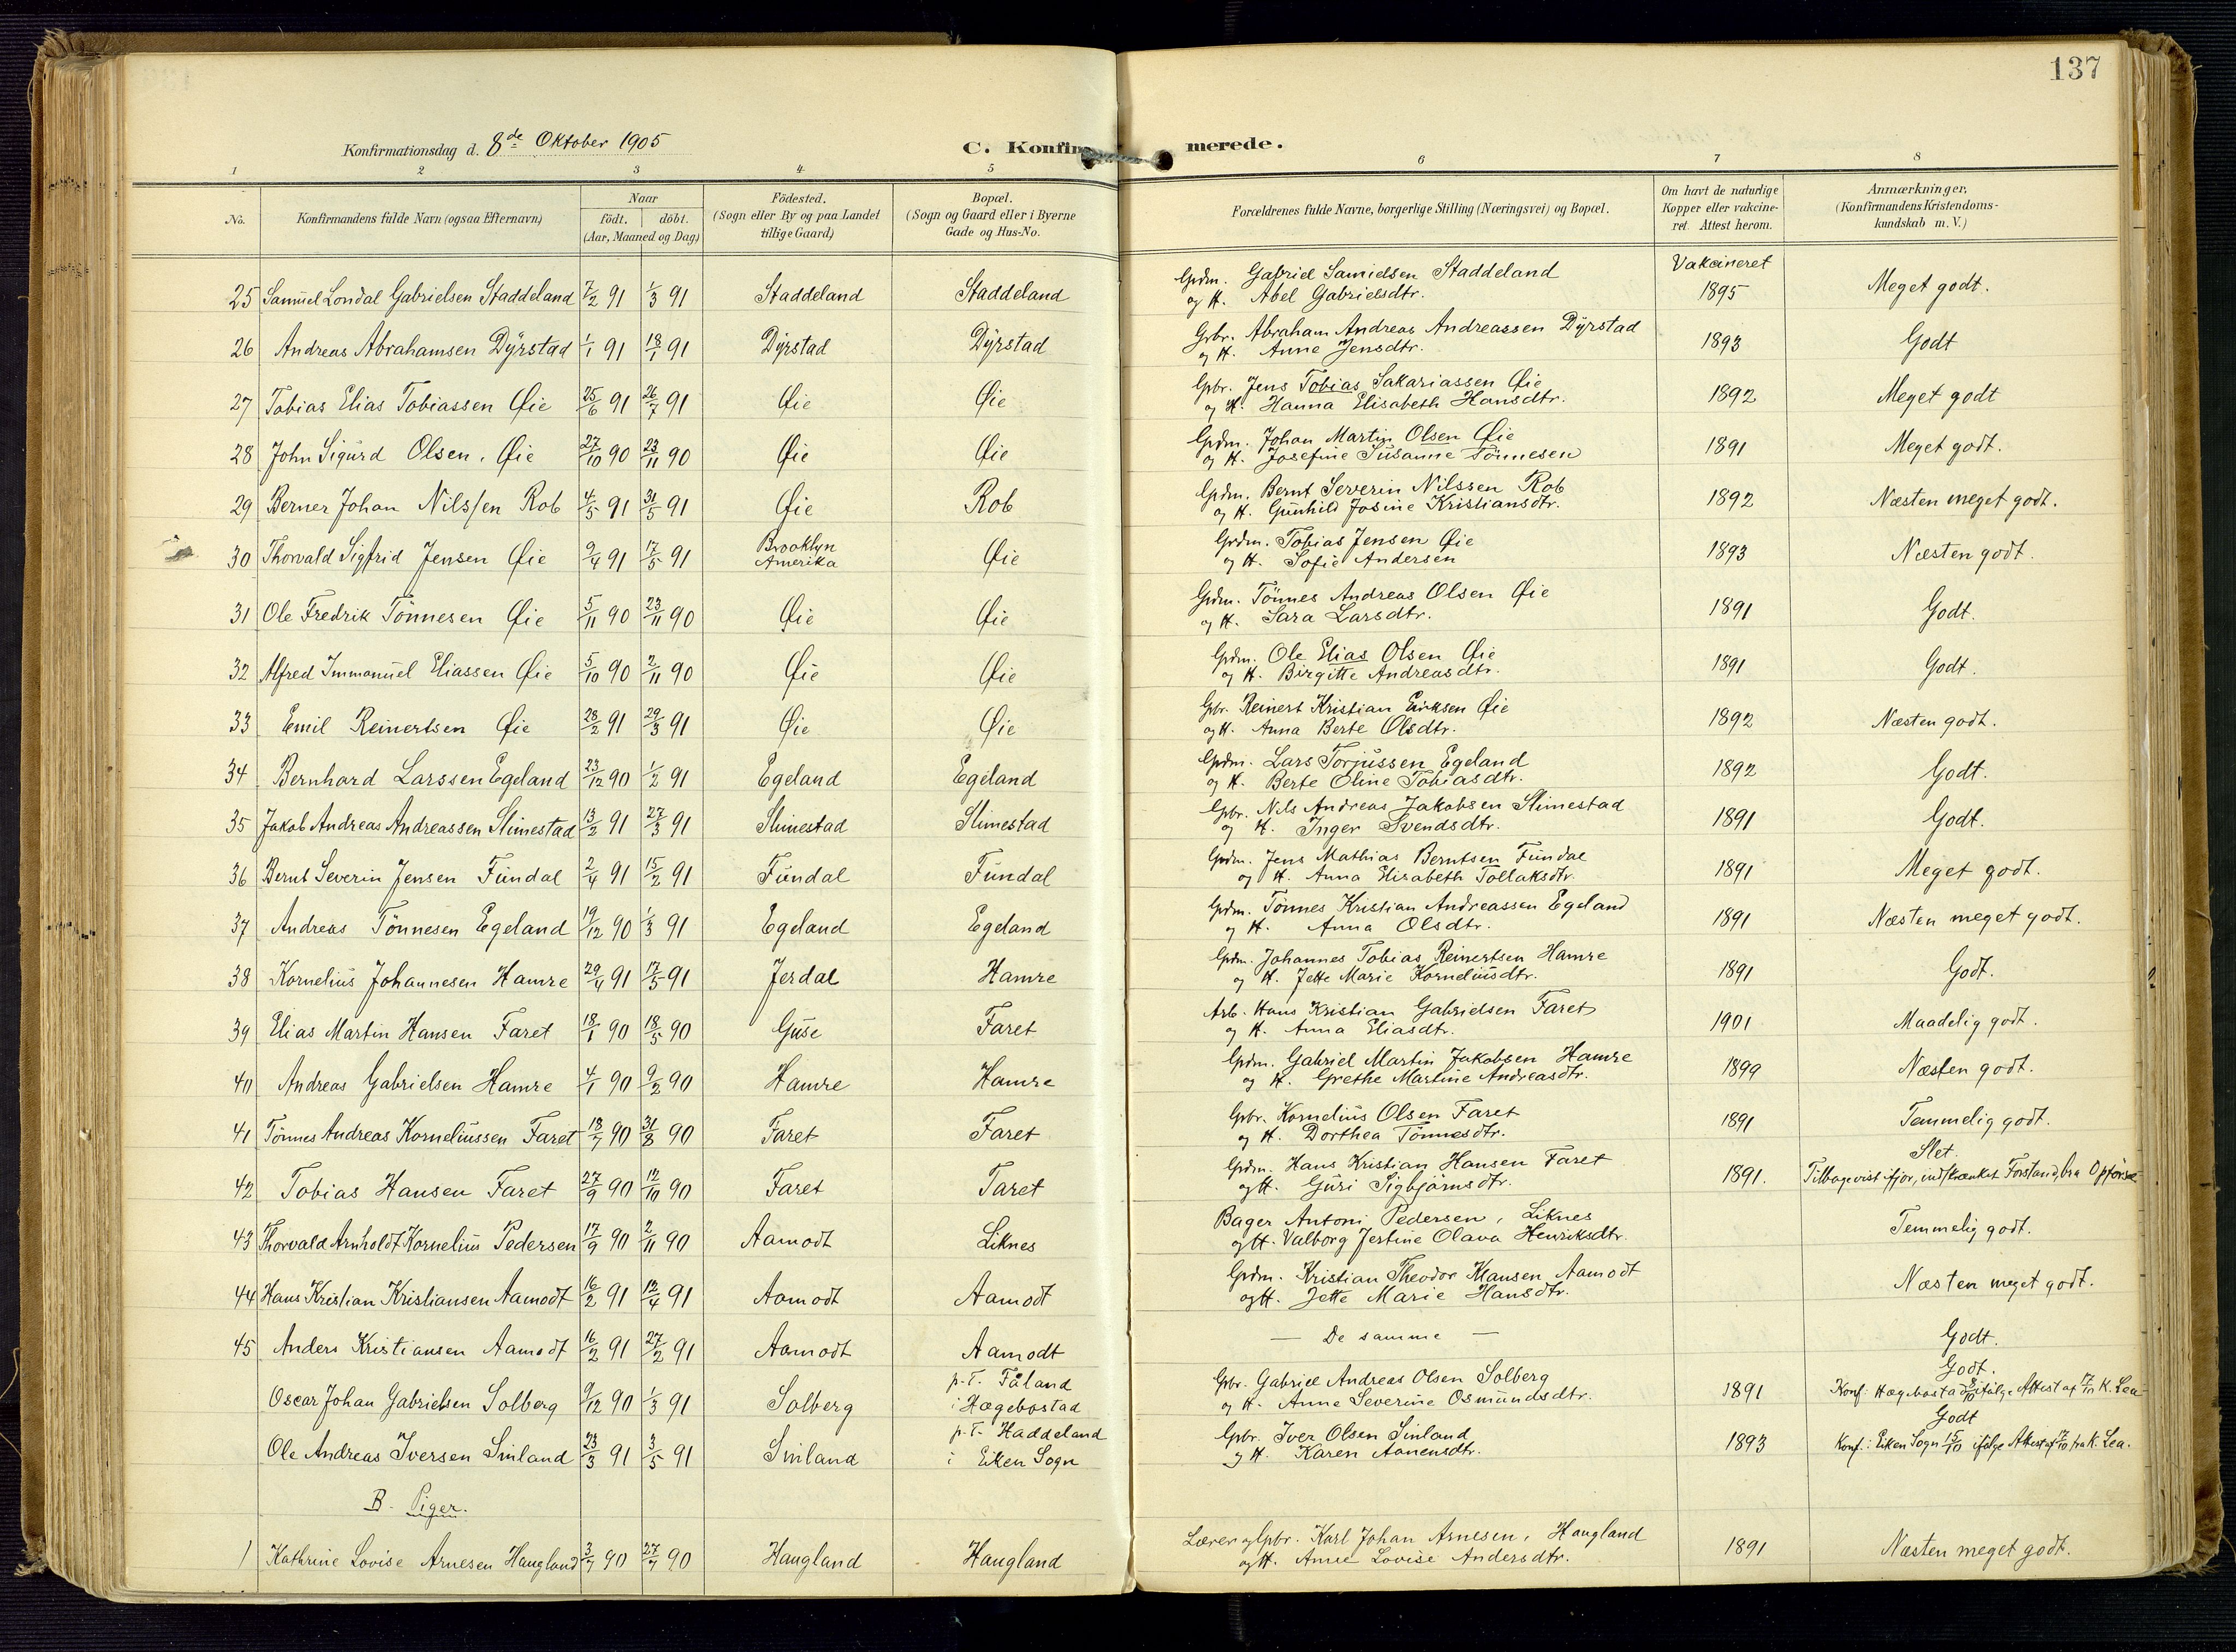 137
Konfirmationsdag d. 8de Oktober 1905
C. Konfirmerede.
1 2 3 4 5 6 7 8
No. Konfirmandens fulde Navn (ogsaa Efternavn) Naar födt. döbt. (Aar, Maaned og Dag) Födested. (Sogn eller By og paa Landet tillige Gaard) Bopæl. (Sogn og Gaard eller i Byerne Gade og Hus-No. Forældrenes fulde Navne, borgerlige Stilling (Næringsvei) og Bopæl. Om havt de naturlige Kopper eller vakcineret. Attest herom. Anmærkninger. (Konfirmandens Kristendomskundskab m. V.)
25 Samuel Londal Gabrielsen Staddeland 7/2 91 1/3 91 Staddeland Staddeland Grdm. Gabriel Samielsen Staddeland Vakcineret
og H. Abel Gabrielsdtr. 1895 Meget godt.
26 Andreas Abrahamsen Dÿrstad 1/1 91 18/1 91 Dÿrstad Dÿrstad Grbr. Abraham Andreas Andreassen Dÿrstad
og H. Anne Jensdtr. 1893 Godt
27 Tobias Elias Tobiassen Øie 25/6 91 26/7 91 Øie Øie Gbr. Jens Tobias Sakariassen Øie
og H. Hanna Elisabeth Hansdtr. 1892 Meget godt
28 John Sigurd Olsen. Øie 27/10 90 23/11 90 Øie Øie Grdm. Johan Martin Olsen Øie
og H. Josefine Susanne Tönnesen 1891 Meget godt.
29 Berner Johan Nilssen Rob 4/5 91 31/5 91 Øie Rob Grdm. Bernt Severin Nilssen Rob
og H. Gunhild Josine Kristiansdtr. 1892 Næsten meget godt.
30 Thorvald Sigfrid Jensen Øie 9/4 91 17/5 91 Brooklyn Amerika Øie Grdm. Tobias Jensen Øie
og H. Sofie Andersen 1893 Næsten godt.
31 Ole Fredrik Tönnesen Øie 5/11 90 23/11 90 Øie Øie Grdm. Tönnes Andreas Olsen Øie
og H. Sara Larsdtr. 1891 Godt.
32 Alfred Immanuel Eliassen Øie 5/10 90 2/11 90 Øie Øie Grdm. Ole Elias Olsen Øie
og H. Birgitte Andreasdtr. 1891 Godt.
33 Emil Reinertsen Øie 28/2 91 29/3 91 Øie Øie Gbr. Reinert Kristian Eriksen Øie
og H. Anna Berte Olsdtr. 1892 Næsten godt.
34 Bernhard Larssen Egeland 23/12 90 1/2 91 Egeland Egeland Grdm. Lars Torjussen Egeland
og H. Berte Oline Tobiasdtr. 1892 Godt.
35 Jakob Andreas Andreassen Slimestad 13/2 91 27/3 91 Slimestad Slimestad Gbr. Nils Andreas Jakobsen Slimestad
og H. Inger Svendsdtr. 1891 Godt.
36 Bernt Severin Jensen Fundal 2/4 91 15/2 91 Fundal Fundal Grdm. Jens Mathias Berntsen Fundal
og H. Anna Elisabeth Tollaksdtr. 1891 Meget godt.
37 Andreas Tönnesen Egeland 19/12 90 1/3 91 Egeland Egeland Grdm. Tönnes Kristian Andreassen Egeland
og H. Anna Olsdtr. 1891 Næsten meget godt.
38 Kornelius Johannesen Hamre 29/4 91 17/5 91 Jerdal Hamre Grdm. Johannes Tobias Reinertsen Hamre
og H. Jette Marie Korneliusdtr. 1891 Godt.
39 Elias Martin Hansen Faret 18/1 90 18/5 90 Guse Faret Arb. Hans Kristian Gabrielsen Faret
og H. Anna Eliasdtr. 1901 Maadelig godt.
40 Andreas Gabrielsen Hamre 4/1 90 9/2 90 Hamre Hamre Grdm. Gabriel Martin Jakobsen Hamre
og H. Grethe Martine Andreasdtr. 1899 Næsten godt.
41 Tönnes Andreas Korneliussen Faret 18/7 90 31/8 90 Faret Faret Gbr. Kornelius Olsen Faret
og H. Dorthea Tönnesdtr. 1891 Temmelig godt.
42 Tobias Hansen Faret 27/9 90 12/10 90 Faret Faret Grdm. Hans Kristian Hansen Faret Slet.
og H. Guri Sigbjörnsdtr. 1891. Tilbagevist ifjor, indskrænket Forstand, bra Opförse
43 Thorvald Arnholdt Kornelius Pedersen 17/9 90 2/11 90 Aamodt Liknes Bager Antoni Pedersen, Liknes
og H. Valborg Jestine Olava Henriksdtr. Temmelig godt.
44 Hans Kristian Kristiansen Aamodt 16/2 91 12/4 91 Aamodt Aamodt Grdm. Kristian Theodor Klausen Aamodt
og H. Jette Marie Hansdtr. Næsten meget godt.
45 Anders Kristiansen Aamodt 16/2 91 27/2 91 Aamodt Aamodt — De samme — Godt.
Oscar Johan Gabrielsen Solberg 9/12 90 1/3 91 Solberg p.T. Tåland i Hægebostad Gbr. Gabriel Andreas Olsen Solberg Godt.
og H. Anne Severine Osmundsdtr. 1891 Konf: Hægebostad 8/10 ifölge Attest af 17/11 K. Lea
Ole Andreas Iversen Sinland 23/3 91 3/5 91 Sinland p.T. Haddeland i Eiken Sogn Gbr. Iver Olsen Sinland Godt
og H. Karen Aanensdtr. 1893 Konf. i Eiken Sogn 15/10 ifölge Attest af 17/10 fra K. Lea.
B. Piger.
1 Kathrine Lovise Arnesen Haugland 3/7 90 27/7 90 Haugland Haugland Lærer og Gbr. Karl Johan Arnesen, Haugland
og H. Anne Lovise Andersdtr. 1891 Næsten meget godt.